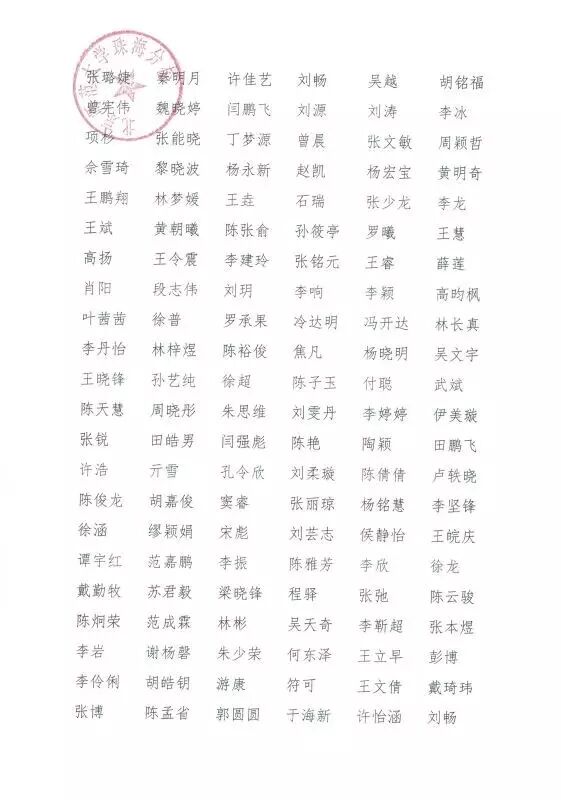 北京师范大学珠海分校
张璐婕 秦明月 许佳艺 刘畅 吴越 胡铭福
曾宪伟 魏晓婷 闫鹏飞 刘源 刘涛 李冰
项杉 张能晓 丁梦源 曾晨 张文敏 周颖哲
佘雪琦 黎晓波 杨永新 赵凯 杨宏宝 黄明奇
王鹏翔 林梦媛 王垚 石瑞 张少龙 李龙
王斌 黄朝曦 陈张俞 孙筱亭 罗曦 王慧
高扬 王令震 李建玲 张铭元 王睿 薛莲
肖阳 段志伟 刘玥 李响 李颖 高昀枫
叶茜茜 徐普 罗承果 冷达明 冯开达 林长真
李丹怡 林梓煜 陈裕俊 焦凡 杨晓明 吴文宇
王晓锋 孙艺纯 徐超 陈子玉 付聪 武斌
陈天慧 周晓彤 朱思维 刘雯丹 李婷婷 伊美璇
张锐 田皓男 闫强彪 陈艳 陶颖 田鹏飞
许浩 亓雪 孔令欣 刘柔璇 陈倩倩 卢轶晓
陈俊龙 胡嘉俊 窦睿 张丽琼 杨铭慧 李坚锋
徐涵 缪颖娟 宋彪 刘芸志 侯静怡 王皖庆
谭宇红 范嘉鹏 李振 陈雅芳 李欣 徐龙
戴勤牧 苏君毅 梁晓锋 程驿 张弛 陈云骏
陈炯荣 范成霖 林彬 吴天奇 李靳超 张本煜
李岩 谢杨磬 朱少荣 何东泽 王立早 彭博
李伶俐 胡皓钥 游康 符可 王文倩 戴琦玮
张博 陈孟省 郭圆圆 于海新 许怡涵 刘畅